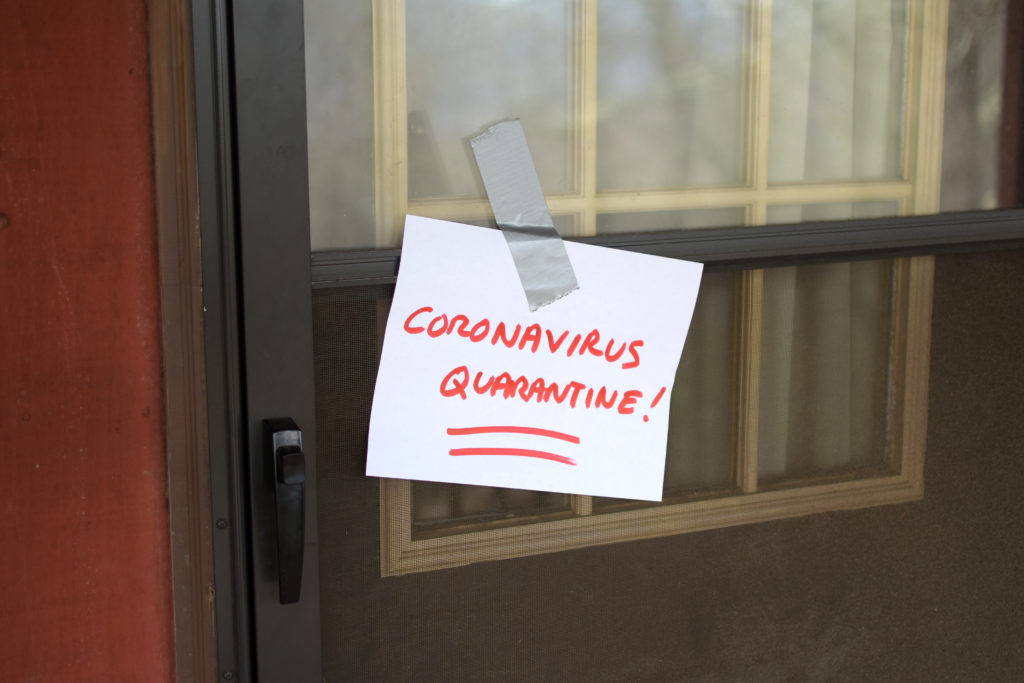 CORONAVIRUS
QUARANTINE!